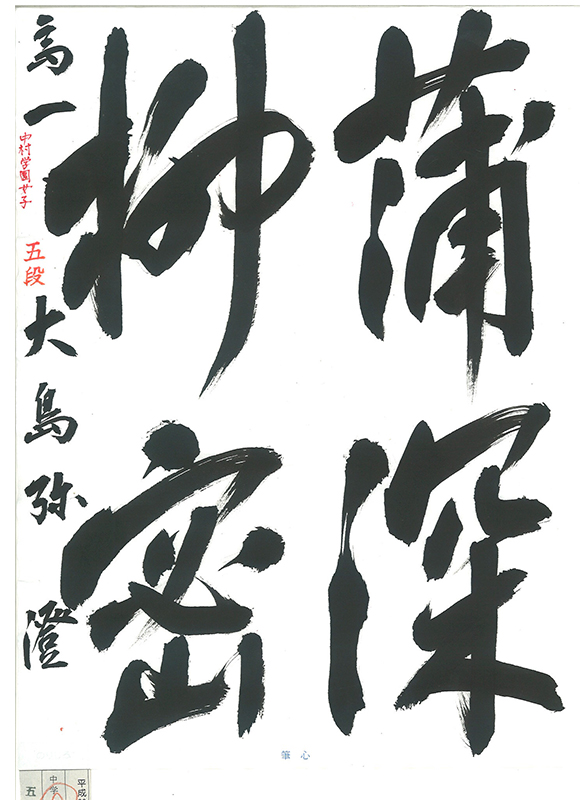 蒲深
柳密
高一
中村学園女子
五段
大島弥澄
心筆
平成
中学
五